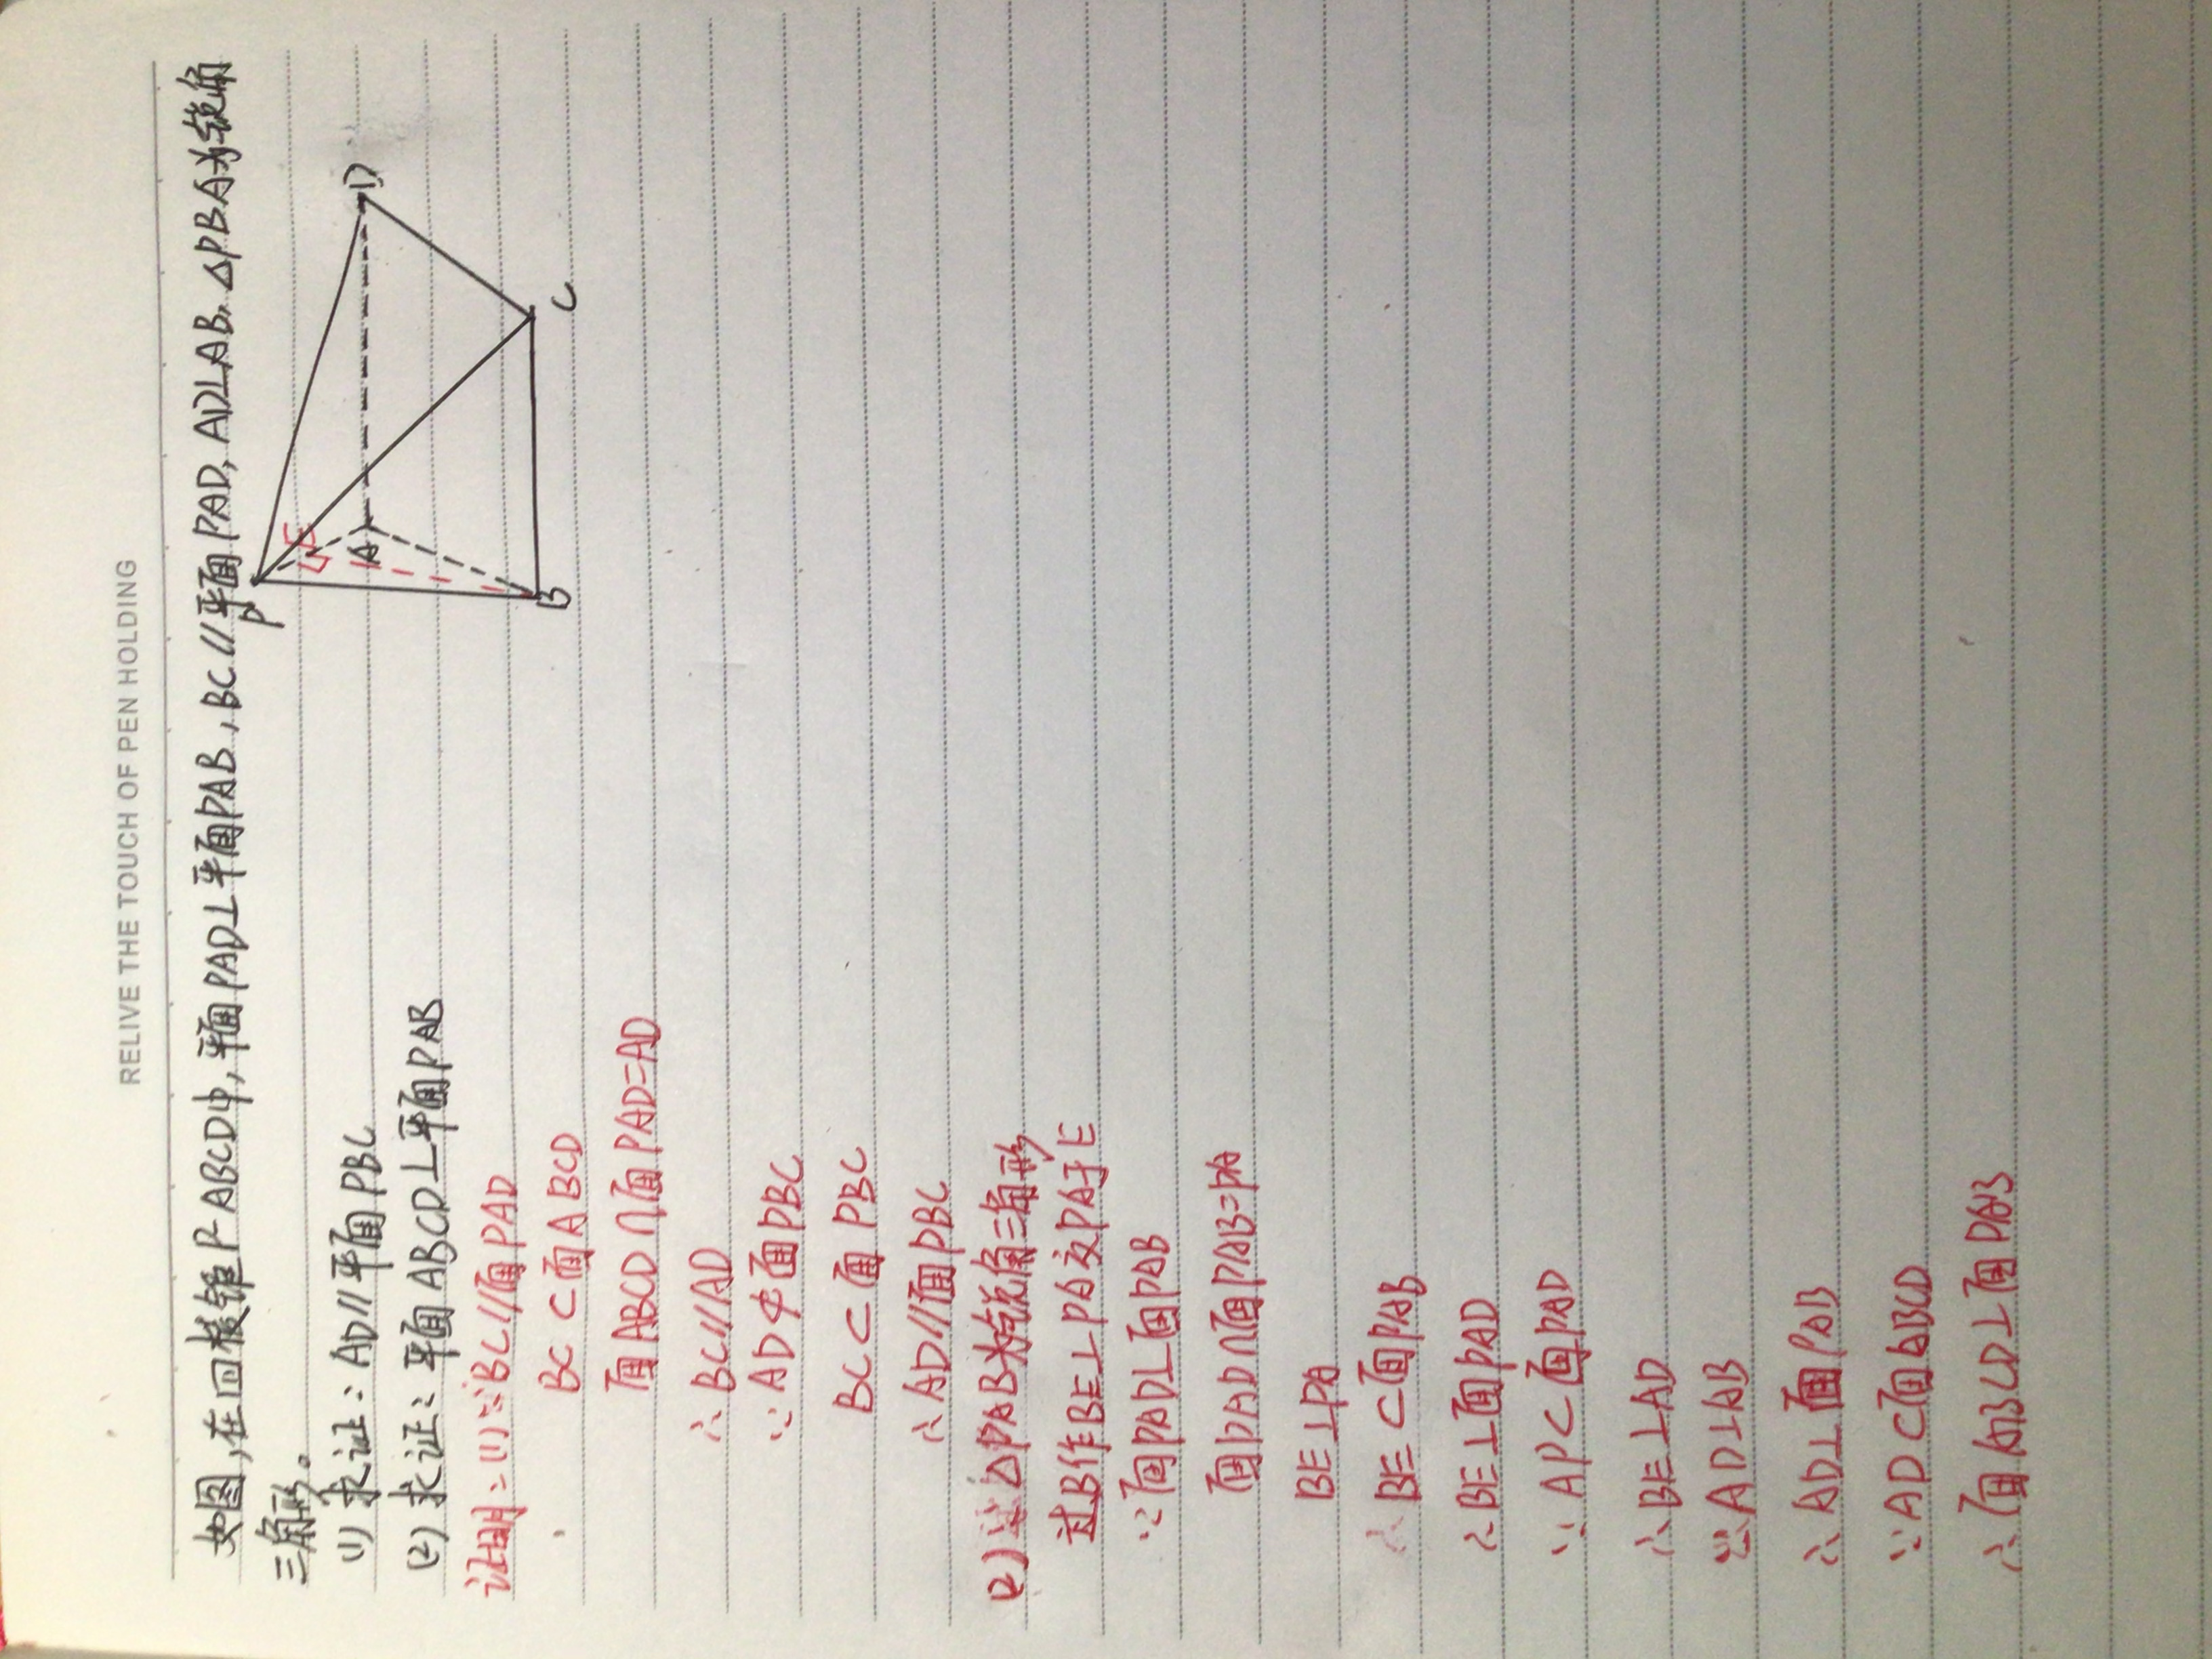 RELIVE THE TOUCH OF PEN HOLDING
如图,在四棱锥P-ABCD中,平面PAD⊥平面PAB,BC∥平面PAD,AD⊥AB,△PBA为锐角
三角形。
(1)求证:AD∥平面PBC
(2)求证:平面ABCD⊥平面PAB
P
E
A
D
B
C
证明:(1)∵BC∥面PAD
BC⊂面ABCD
面ABCD∩面PAD=AD
∴BC∥AD
∵AD⊄面PBC
BC⊂面PBC
∴AD∥面PBC
(2)∵△PAB为锐角三角形
过B作BE⊥PA交PA于E
∵面PAD⊥面PAB
面PAD∩面PAB=PA
BE⊥PA
BE⊂面PAB
∴BE⊥面PAD
∵AP⊂面PAD
∴BE⊥AD
∵AD⊥AB
∴AD⊥面PAB
∵AD⊂面ABCD
∴面ABCD⊥面PAB